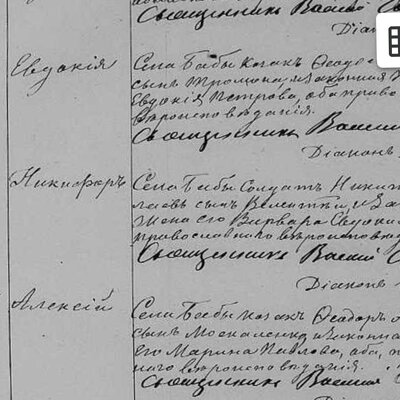 Священникъ Василій
Діаконъ
Евдокія
Села Бабы козакъ Ѳеодо
сынъ Трошина и законная
Евдокія Петрова, оба право
вѣроисповѣданія.
Священникъ Василій
Діаконъ
Никифоръ
Села Бабы солдатъ Никит
сынъ и за
жена его Варвара
православнаго вѣроисповѣд
Священникъ Василій
Діаконъ
Алексій
Села Бабы козакъ Ѳеодоръ
сынъ Москаленко и законна
его Марина Павлова, оба, п
наго вѣроисповѣданія.
Священникъ Василій